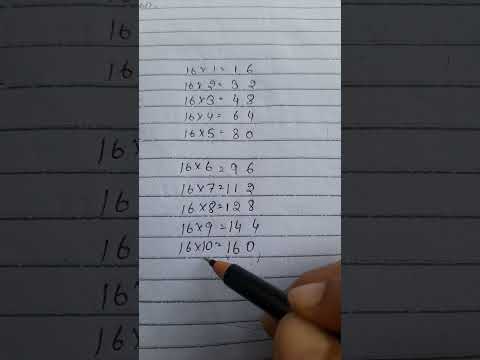 16×1=16
16×2=32
16×3=48
16×4=64
16×5=80
16×6=96
16×7=112
16×8=128
16×9=144
16×10=160